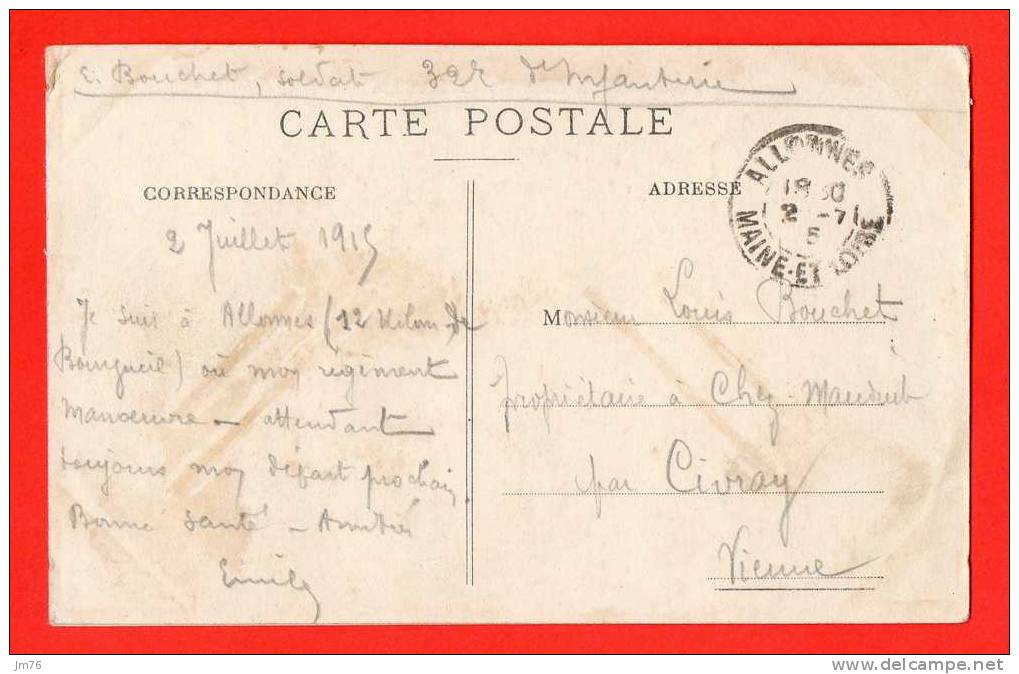 E. Bouchet, soldat 32e d'Infanterie
CARTE POSTALE
CORRESPONDANCE
ADRESSE
ALLONNES
18 30
2 -7
5
MAINE-ET-LOIRE
2 Juillet 1915
Je suis à Allonnes (12 kilom de
Bourgueil) où mon régiment
manoeuvre – attendant
toujours mon départ prochain.
Bonne santé – Amitiés
Emile
Monsieur Louis Bouchet
propriétaire à Chez-
par Civray
Vienne
jm76
www.delcampe.net